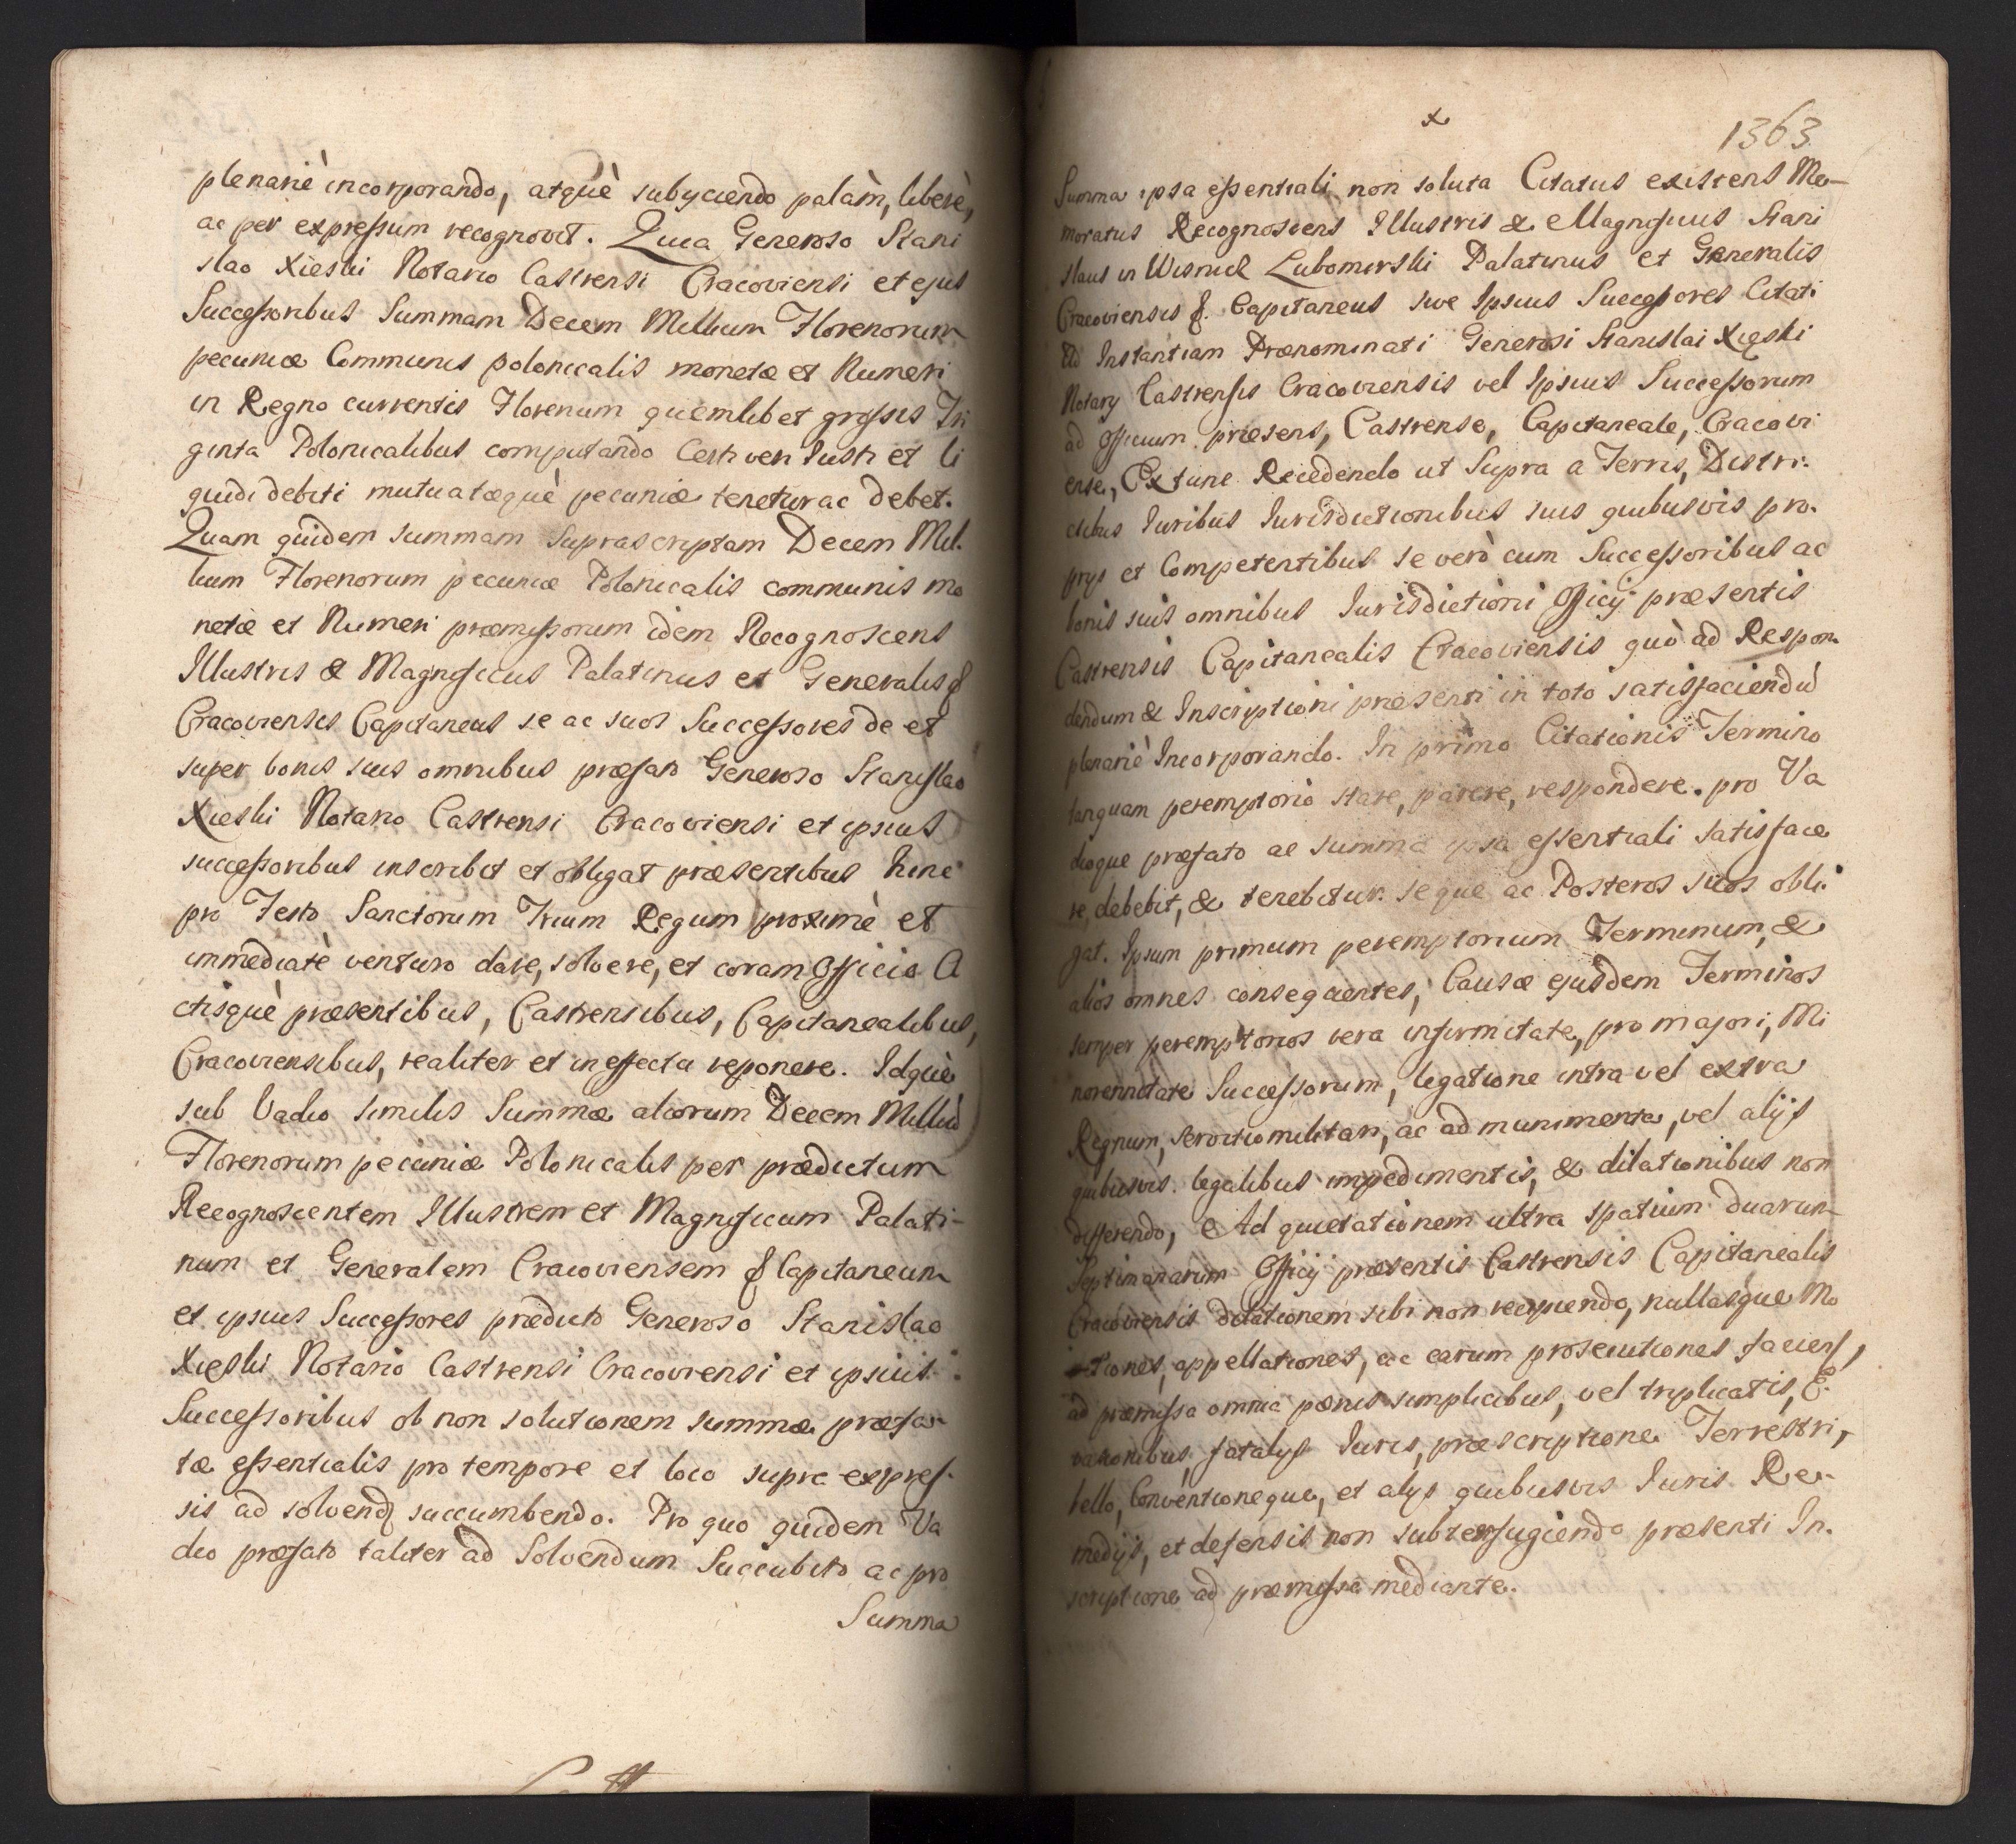 plenariè incorporando, atquè subyciendo palàm, liberè,
ac per expressum recognovit. Quia Generoso Stani
slao Xięski Notario Castrensi Cracoviensi et ejus
Successoribus Summam Decem Millium Florenorum
pecuniæ Communis polonicalis monetæ et Numeri
in Regno currentis Florenum quemlibet grossis Tri
ginta Polonicalibus computando Certi veri Iusti et li
quidi debiti mutuatæquè pecuniæ tenetur ac debet.
Quam quidem summam suprascriptam Decem Mil.
lium Florenorum pecuniæ Polonicalis communis mo
netæ et Numeri præmissorum idem Recognoscens
Illustris & Magnificus Palatinus et Generalis
Cracoviensis Capitaneus se ac suos Successores de et
super bonis suis omnibus præfato Generoso Stanislao
Xięski Notario Castrensi Cracoviensi et ipsius
successoribus inscribit et obligat præsentibus hinc
pro Festo Sanctorum Trium Regum proximè et
immediatè venturo dare, solvere, et coram Officio A
ctisquè præsentibus, Castrensibus, Capitanealibus,
Cracoviensibus, realiter et in effectu reponere. Idquè
sub Vadio similis Summæ aliorum Decem Milliũ
Florenorum pecuniæ Polonicalis per prædictum
Recognoscentem Illustrem et Magnificum Palati-
num et Generalem Cracoviensem Capitaneum
et ipsius Successores prædicto Generoso Stanislao
Xięski Notario Castrensi Cracoviensi et ipsius
Successoribus ob non solutionem summæ præfa-
tæ essentialis pro tempore et loco supra expres-
sis ad solvend succumbendo. Pro quo quidem Va
dio præfato taliter ad Solvendum Succubito ac pro
Summa
x
1363
Summa ipsa essentiali non soluta Citatus existens Me-
moratus Recognoscens Illustris & Magnificus Stani
slaus in Wisnicz Lubomirski Palatinus et Generalis
Cracoviensis Capitaneus sive Ipsius Successores Citati
Ad Instantiam Prænominati Generosi Stanislai Xięski
Notarÿ Castrensis Cracoviensis vel Ipsius Successorum
ad Officium præsens, Castrense, Capitaneale, Cracovi
ense, Ex tunc Recedendo ut Supra a Terris, Distri-
ctibus Iuribus Iurisdictionibus suis quibusvis pro-
prys et Competentibus se verò cum Successoribus ac
bonis suis omnibus Iurisdictioni Officÿ præsentis
Castrensis Capitanealis Cracoviensis quò ad Respon
dendum & Inscriptioni præsenti in toto satisfaciendũ
plenariè Incorporando. In primo Citationis Termino
tanquam peremptorio stare, parere, respondere. pro Va
dioque præfato ac summa ipsa essentiali satisface
re, debebit, & tenebitur. seque ac Posteros suos obli-
gat. Ipsum primum peremptorium Terminum, &
alios omnes consequentes, Causæ ejusdem Terminos
semper peremptorios vera infirmitate, pro majori, Mi
norennitate Successorum, legatione intra vel extra
Regnum, servitio militari, ac ad munimenta, vel alijs
quibusvis legalibus impedimentis, & dilationibus non
differendo, Ad quietationem ultra spatium duarum
Septimanarum Officÿ præsentis Castrensis Capitanealis
Cracoviensis dilationem sibi non recipiendo, nullasque Mo
tiones, appellationes, ac earum prosecutiones faciens,
ad præmissa omnia pænis simplicibus, vel triplicatis, E-
vasionibus, fatalÿs Iuris, præscriptione Terrestri,
bello, Conventioneque, et alÿs quibusvis Iuris Re-
medÿs, et defensis non subterfugiendo præsenti In-
scriptione ad præmissa mediante.